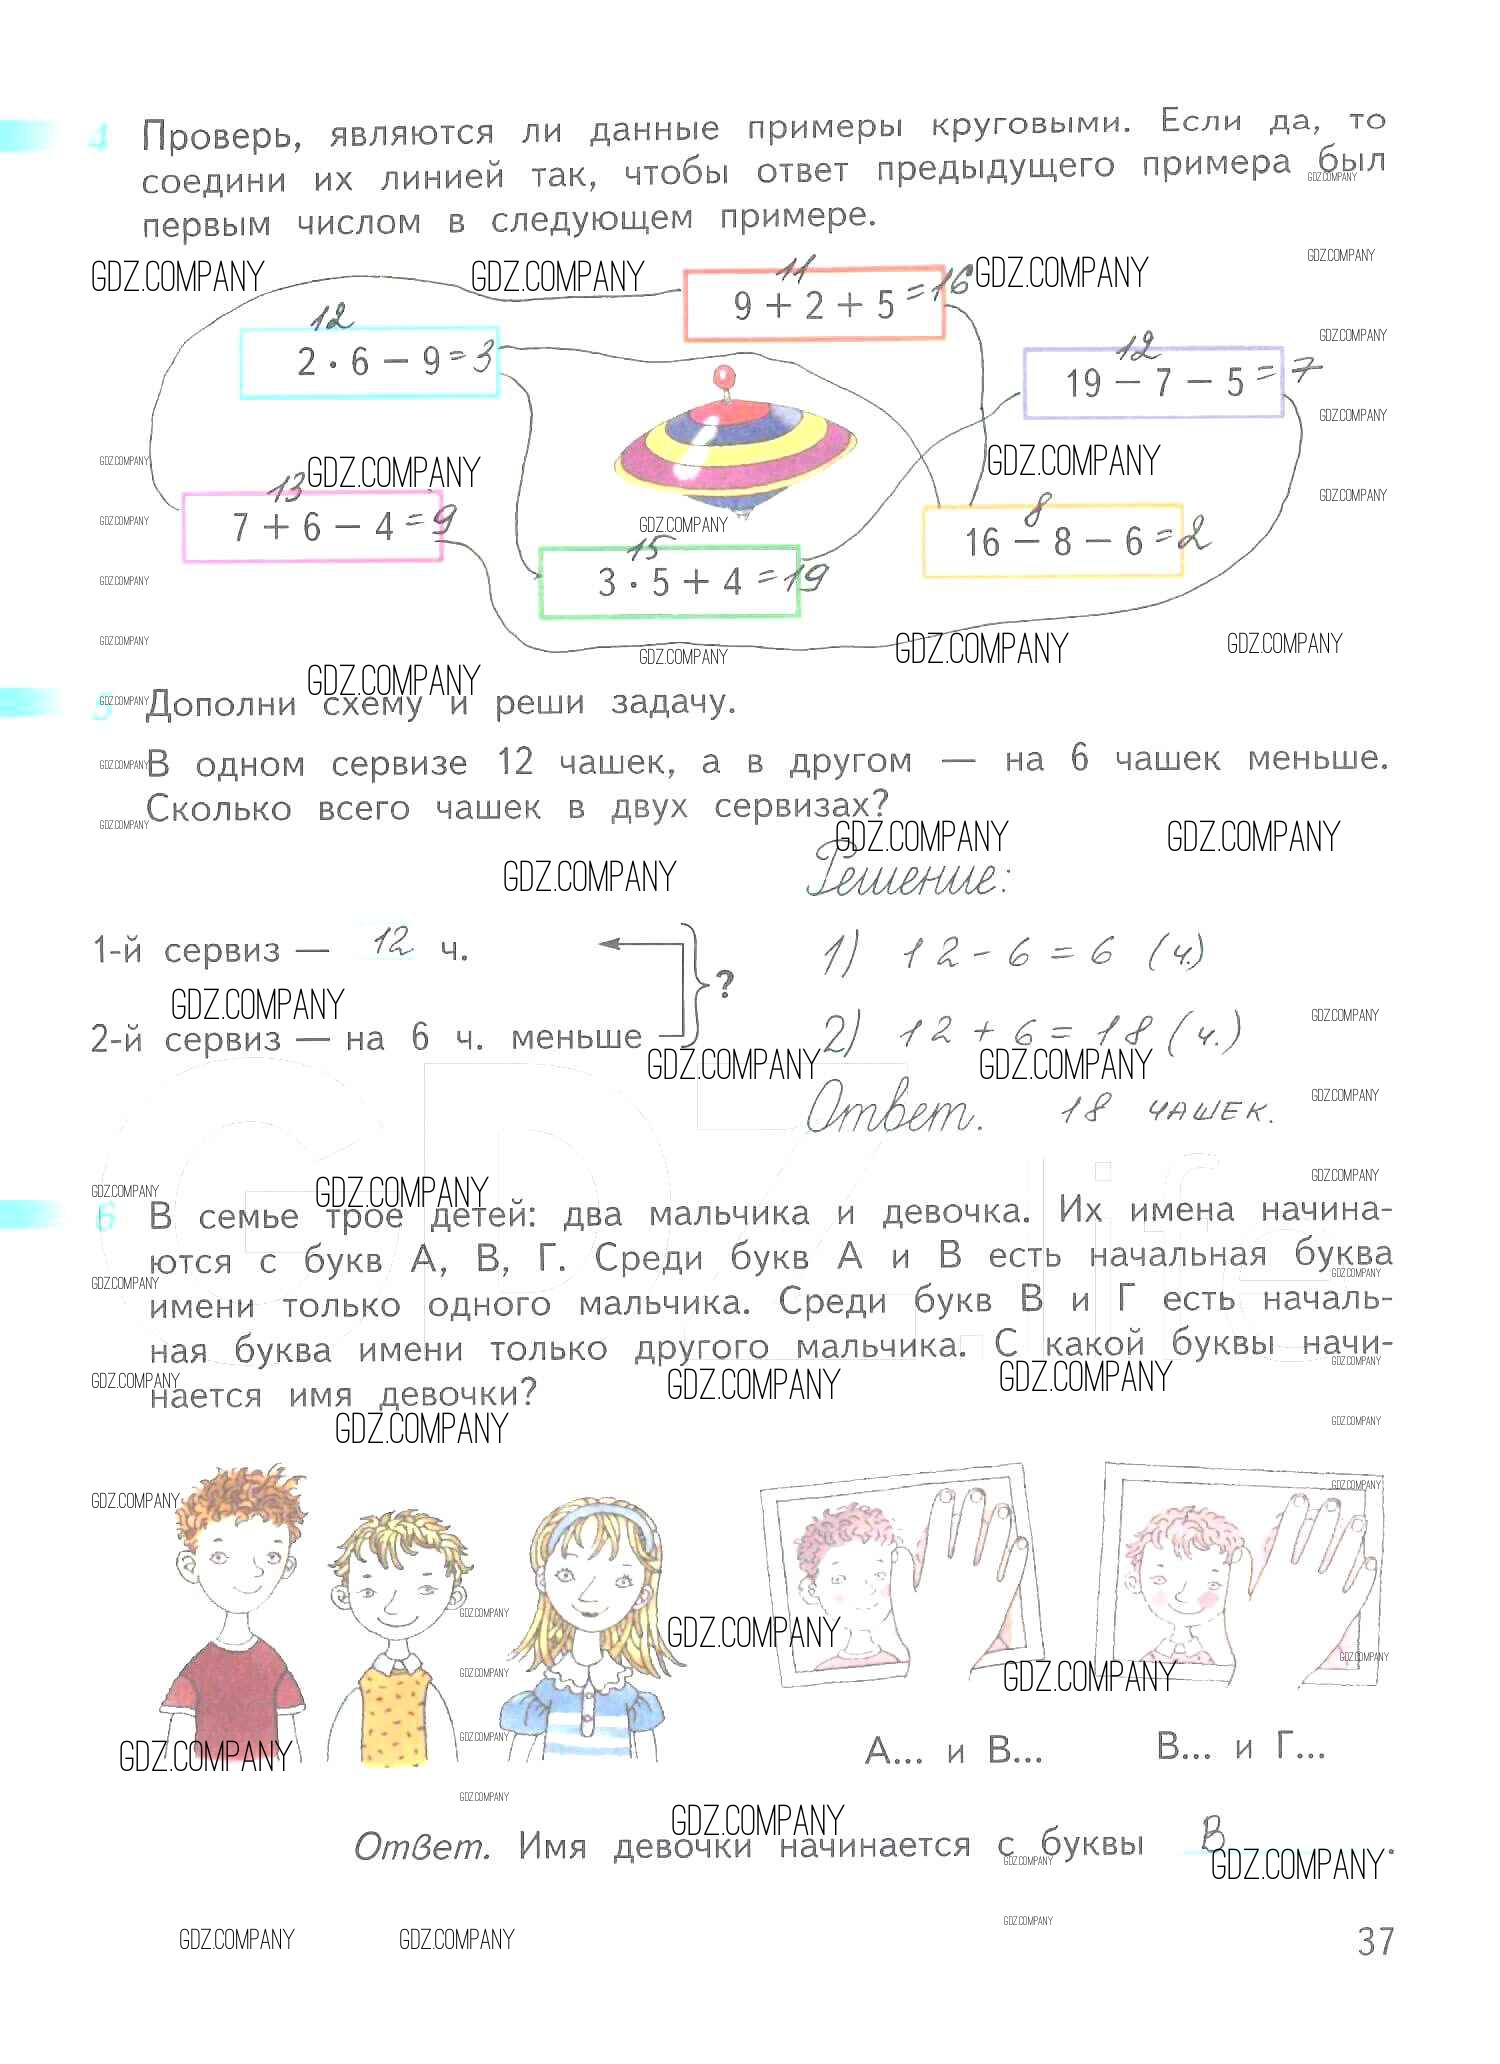 4 Проверь, являются ли данные примеры круговыми. Если да, то
соедини их линией так, чтобы ответ предыдущего примера был
первым числом в следующем примере.
GDZ.COMPANY
11
9 + 2 + 5 = 16
12
2 · 6 − 9 = 3
12
19 − 7 − 5 = 7
13
7 + 6 − 4 = 9
8
16 − 8 − 6 = 2
15
3 · 5 + 4 = 19
5 Дополни схему и реши задачу.
В одном сервизе 12 чашек, а в другом — на 6 чашек меньше.
Сколько всего чашек в двух сервизах?
Решение:
1-й сервиз — 12 ч.
?
2-й сервиз — на 6 ч. меньше
1) 12 - 6 = 6 (ч.)
2) 12 + 6 = 18 (ч.)
Ответ. 18 чашек.
GDZ.life
6 В семье трое детей: два мальчика и девочка. Их имена начина-
ются с букв А, В, Г. Среди букв А и В есть начальная буква
имени только одного мальчика. Среди букв В и Г есть началь-
ная буква имени только другого мальчика. С какой буквы начи-
нается имя девочки?
А... и В... В... и Г...
Ответ. Имя девочки начинается с буквы В.
37